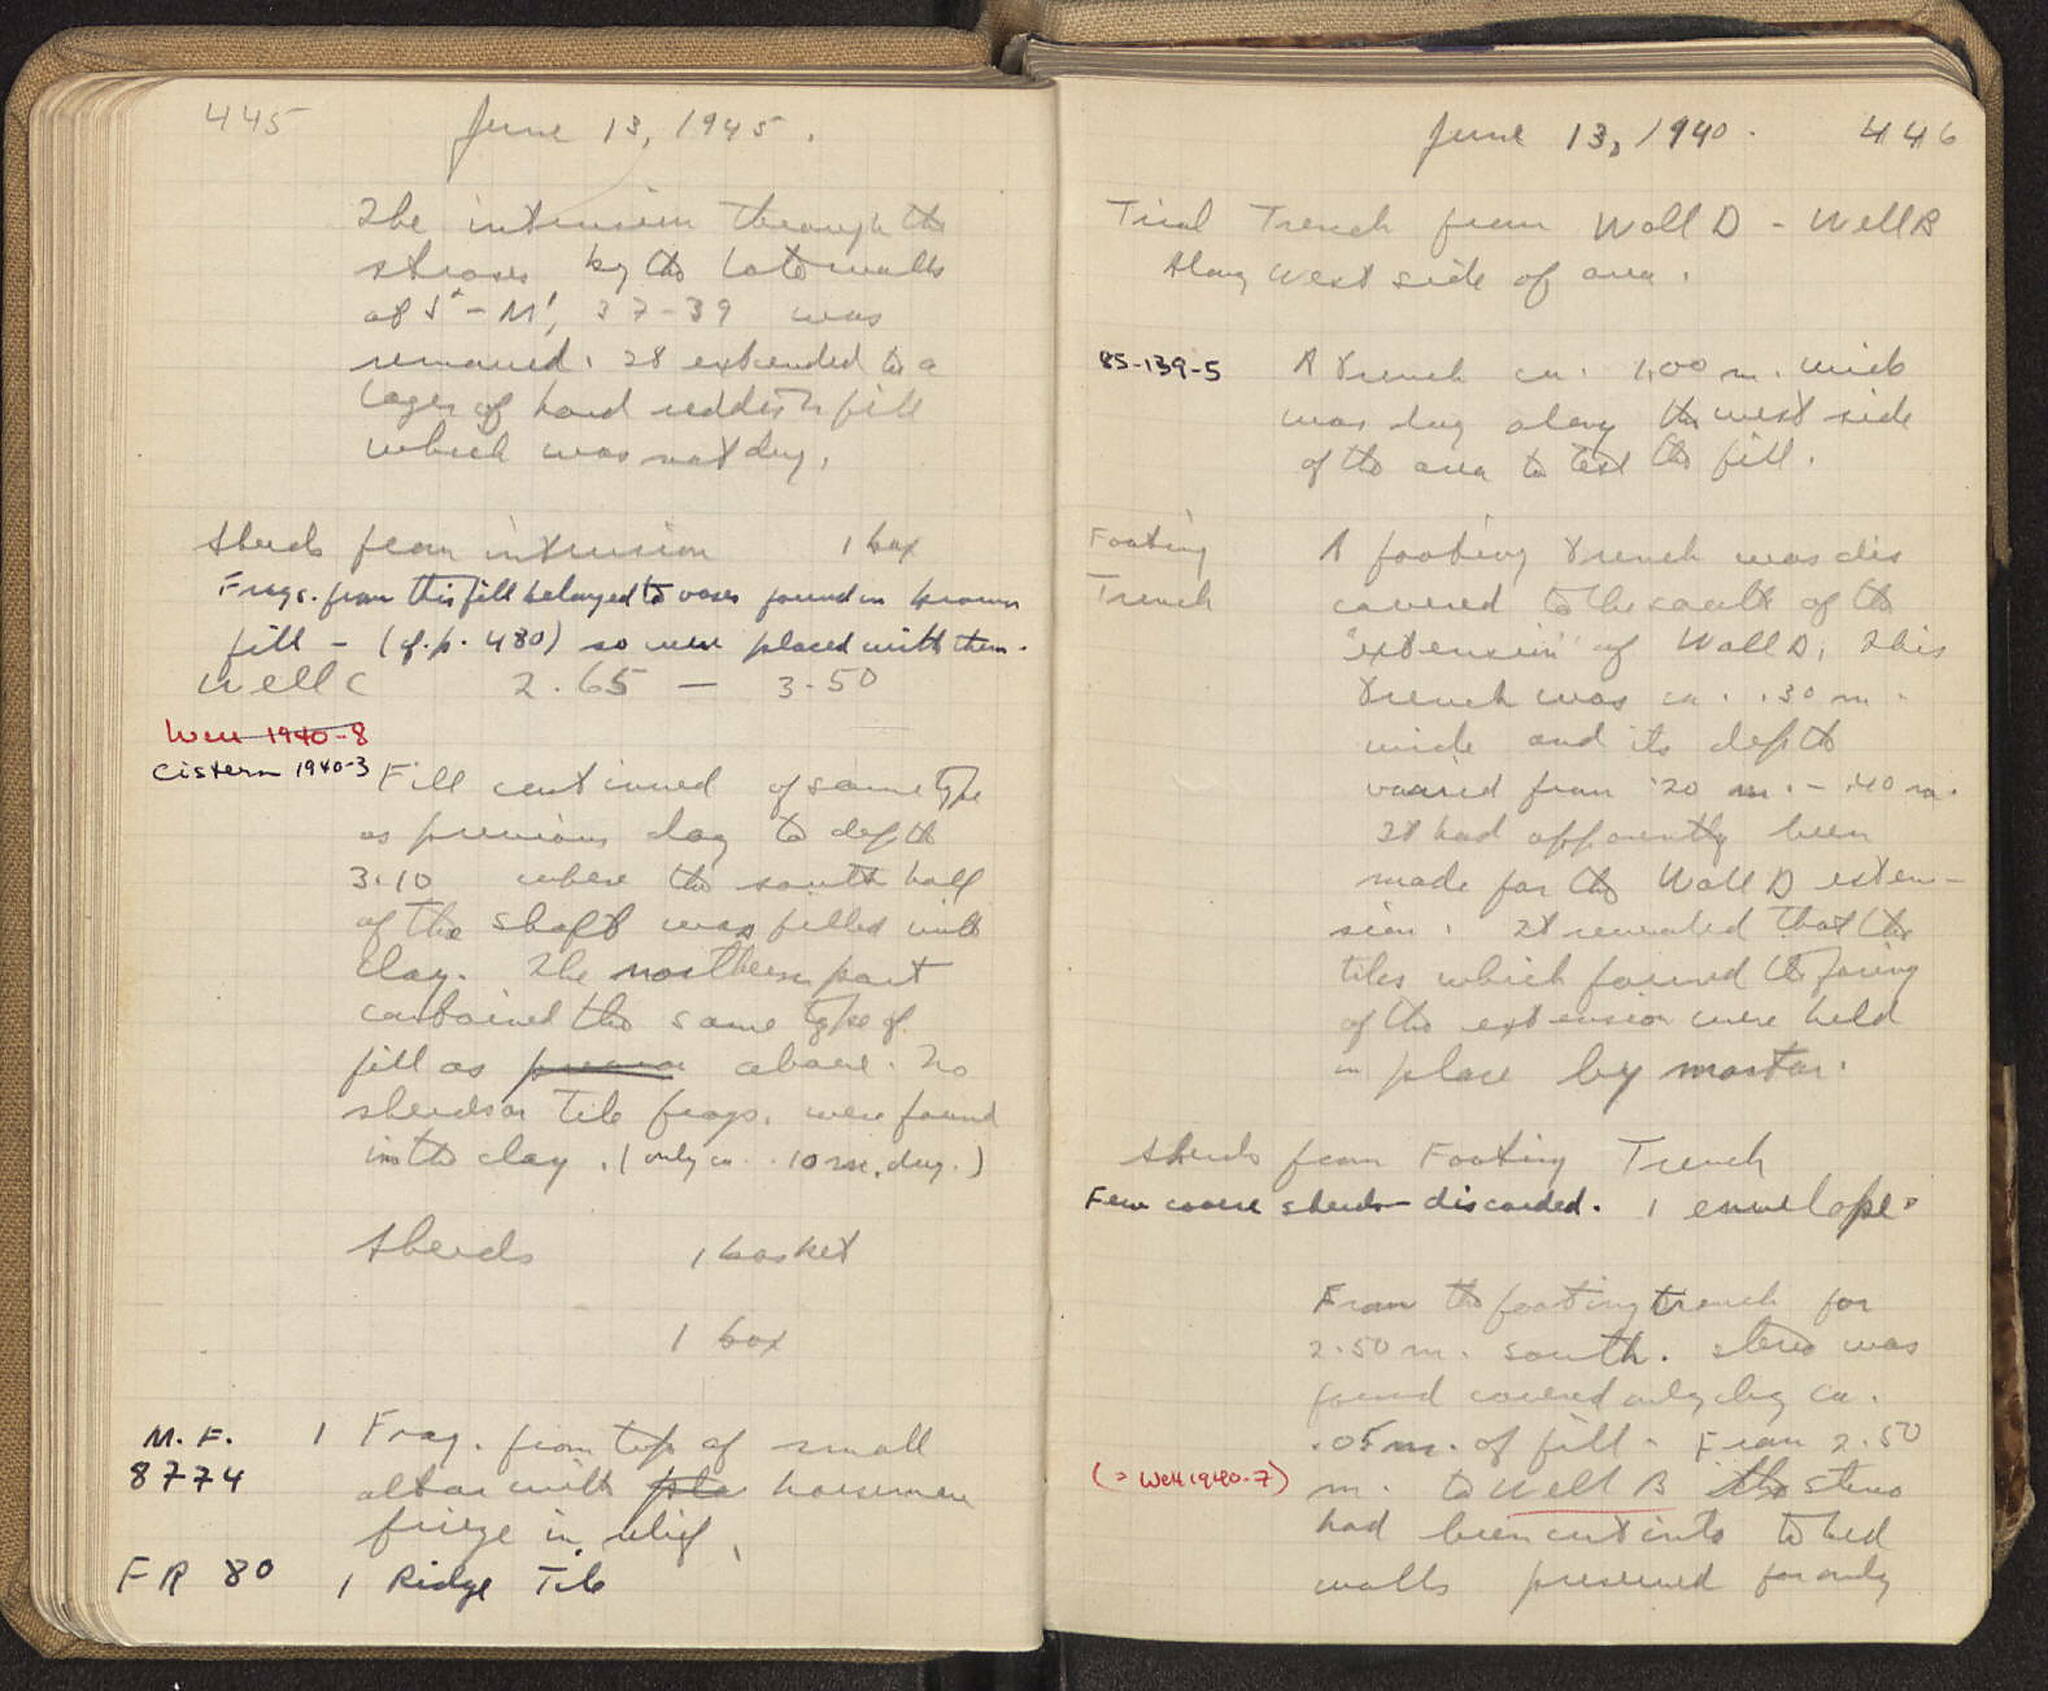 445 June 13, 1945.
The intrusion through the
stroses by the late walls
at J' - M', 37-39 was
removed. It extended to a
layer of hard reddish fill
which was not dug.
Sherds from intrusion 1 box
Frags. from this fill belonged to vases found in brown
fill - (cf. p. 480) so were placed with them.
Well C 2.65 - 3.50
Well 1940-8
Cistern 1940-3
Fill continued of same type
as previous day to depth
3.10 where the south half
of the shaft was filled with
clay. The northern part
contained the same type of
fill as above. No
sherds or tile frags. were found
in the clay. (only ca. .10 m. dug.)
Sherds 1 basket
1 box
M. F. 1 Frag. from top of small
8774 altar with horsemen
frieze in relief.
FR 80 1 Ridge Tile
June 13, 1940. 446
Trial Trench from Wall D - Well B
Along west side of area.
85-139-5 A trench ca. 1.00 m. wide
was dug along the west side
of the area to test the fill.
Footing A footing trench was dis
Trench covered to the south of the
"extension" of Wall D. This
trench was ca. .30 m.
wide and its depth
varied from .20 m. - .40 m.
It had apparently been
made for the Wall D exten-
sion. It revealed that the
tiles which formed the facing
of the extension were held
in place by mortar.
Sherds from Footing Trench
Few coarse sherds - discarded. 1 envelope.
From the footing trench for
2.50 m. south. stereo was
found covered only by ca.
.05 m. of fill. From 2.50
(= Well 1940-7) m. to Well B the stereo
had been cut into to bed
walls preserved for only